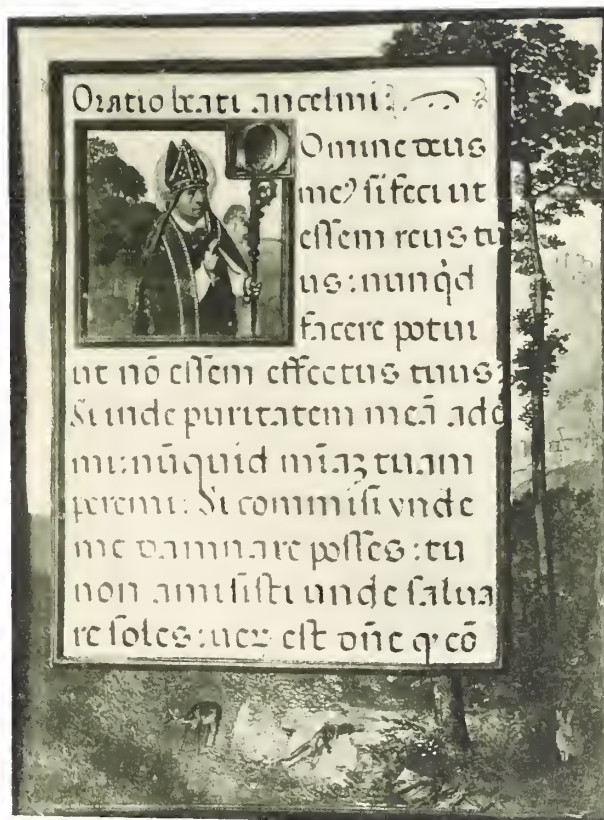 Oratio beati ancelmi:
Domine deus
meꝰ si feci ut
essem reus tu
us: nunq̇d
facere potui
ut nō essem effectus tuus:
Si inde puritatem meā ade
mi: nūquid mīaꝫ tuam
peremi: Si commisi vnde
me damnare posses: tu
non amisisti unde salua
re soles: est dn̄e q eō